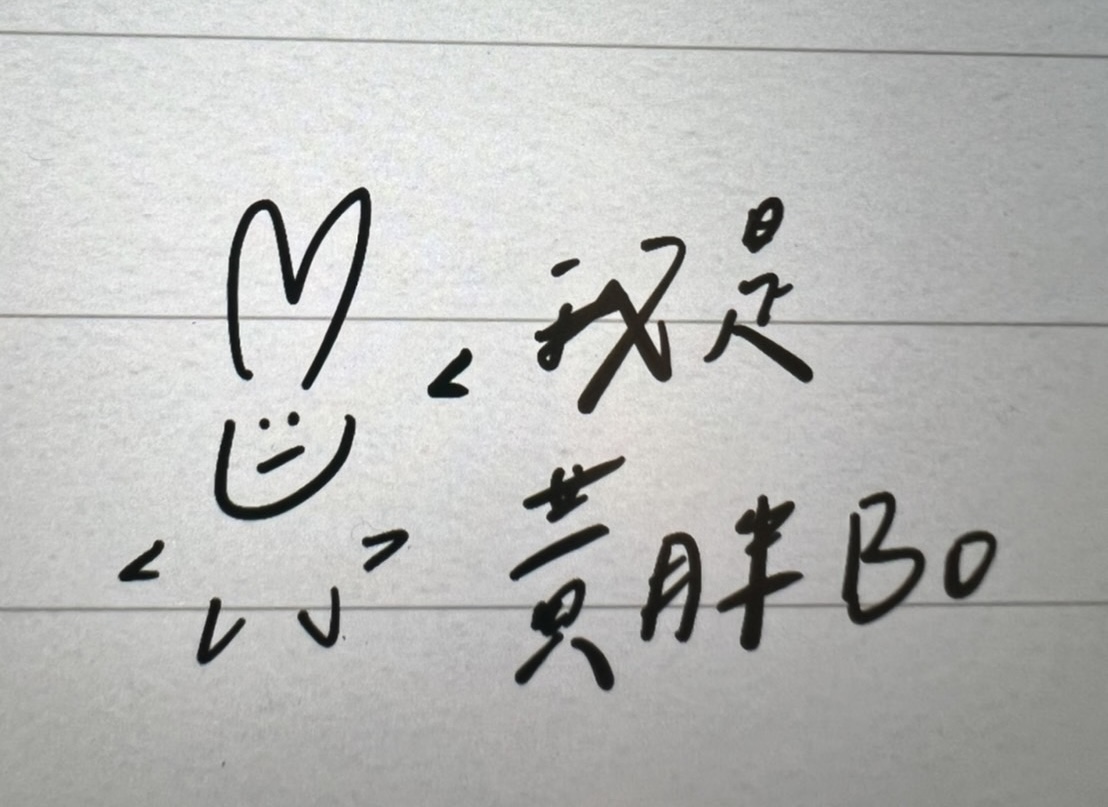 我是
黄胖Bo